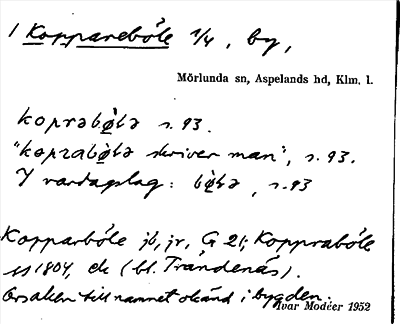 1 Kopparebo̊le 1/4, by,
Mörlunda sn, Aspelands hd, Klm. l.
koprabø̀lə s. 93.
"kəprabø̀lə skriver man", s. 93.
I vardagslag: bø̀lə, s. 93
Kopparbo̊le jb, jr, G 21; Koppraböle
1804, ck (bl. Trändenäs).
Orsaken till namnet okänd i bygden.
Ivar Modéer 1952